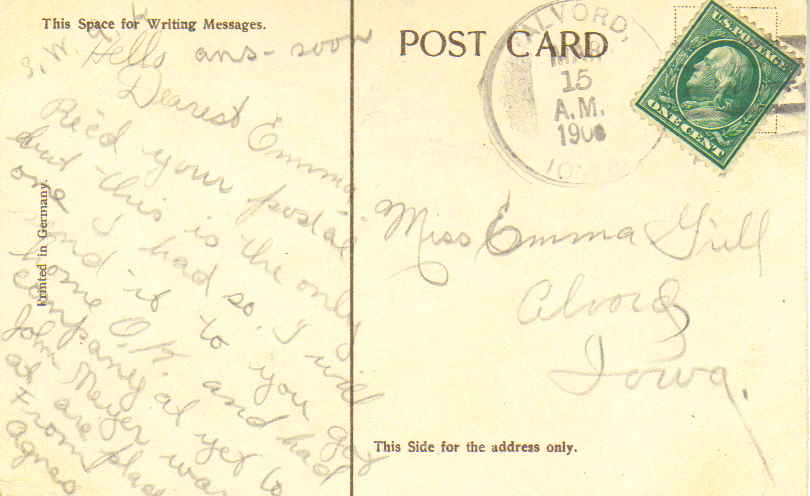 This Space for Writing Messages.
POST CARD
S.W.a.k
Hello ans-soon
Dearest Emma-
Rec'd your postal
but this is the only
one I had so. I will
send it to you got
home O.K. and had
company at yet to
John Meyer was
at are place
From
Agnes
Printed in Germany.
ALVORD,
MAR
15
A.M.
190
IOWA
U.S. POSTAGE
ONE CENT
Miss Emma Gill
Alvord
Iowa.
This Side for the address only.